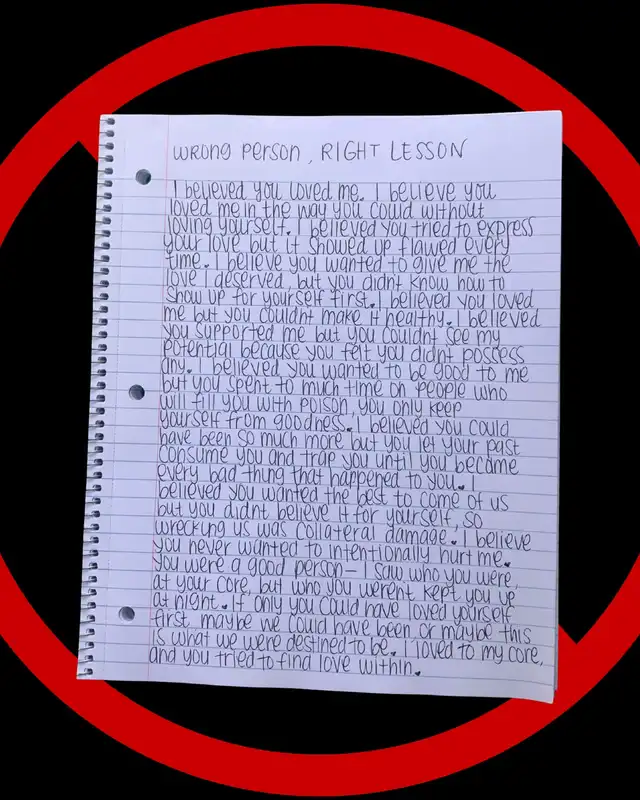 wrong person, RIGHT LESSON
I believed you loved me. I believe you
loved me in the way you could without
loving yourself. I believed you tried to express
your love but it showed up flawed every
time. I believe you wanted to give me the
love I deserved, but you didnt know how to
show up for yourself first. I believed you loved
me but you couldnt make it healthy. I believed
you supported me but you couldnt see my
potential because you felt you didnt possess
any. I believed you wanted to be good to me
but you spent to much time on people who
will fill you with poison, you only keep
yourself from goodness. I believed you could
have been so much more but you let your past
consume you and trap you until you became
every bad thing that happened to you. I
believed you wanted the best to come of us
but you didnt believe it for yourself, so
wrecking us was collateral damage. I believe
you never wanted to intentionally hurt me.
You were a good person – I saw who you were,
at your core, but who you werent kept you up
at night. If only you could have loved yourself
first, maybe we could have been, or maybe this
is what we were destined to be. I loved to my core,
and you tried to find love within.